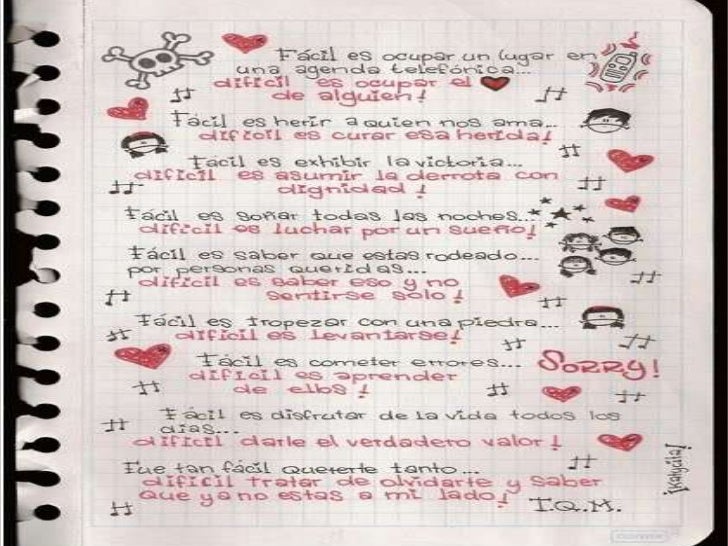 Fácil es ocupar un lugar en
una agenda telefónica...
difícil es ocupar el
de alguien!
Fácil es herir a quien nos ama...
difícil es curar esa herida!
Fácil es exhibir la victoria...
difícil es asumir la derrota con
dignidad!
Fácil es soñar todas las noches...
difícil es luchar por un sueño!
Fácil es saber que estas rodeado...
por personas queridas...
difícil es saber eso y no
sentirse solo!
Fácil es tropezar con una piedra...
difícil es levantarse!
Fácil es cometer errores... SORRY!
difícil es aprender
de ellos!
Fácil es disfrutar de la vida todos los
días...
difícil darle el verdadero valor!
Fue tan fácil quererte tanto...
difícil tratar de olvidarte y saber
que ya no estas a mi lado!
T.Q.M.
¡Katycita!